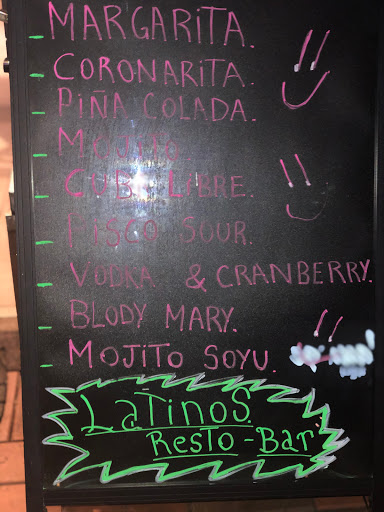 - MARGARITA.
- CORONARITA.
- PIÑA COLADA.
- MOJITO.
- CUBA LIBRE.
- PISCO SOUR.
- VODKA & CRANBERRY.
- BLODY MARY.
- MOJITO SOYU.
LATINOS
RESTO-BAR